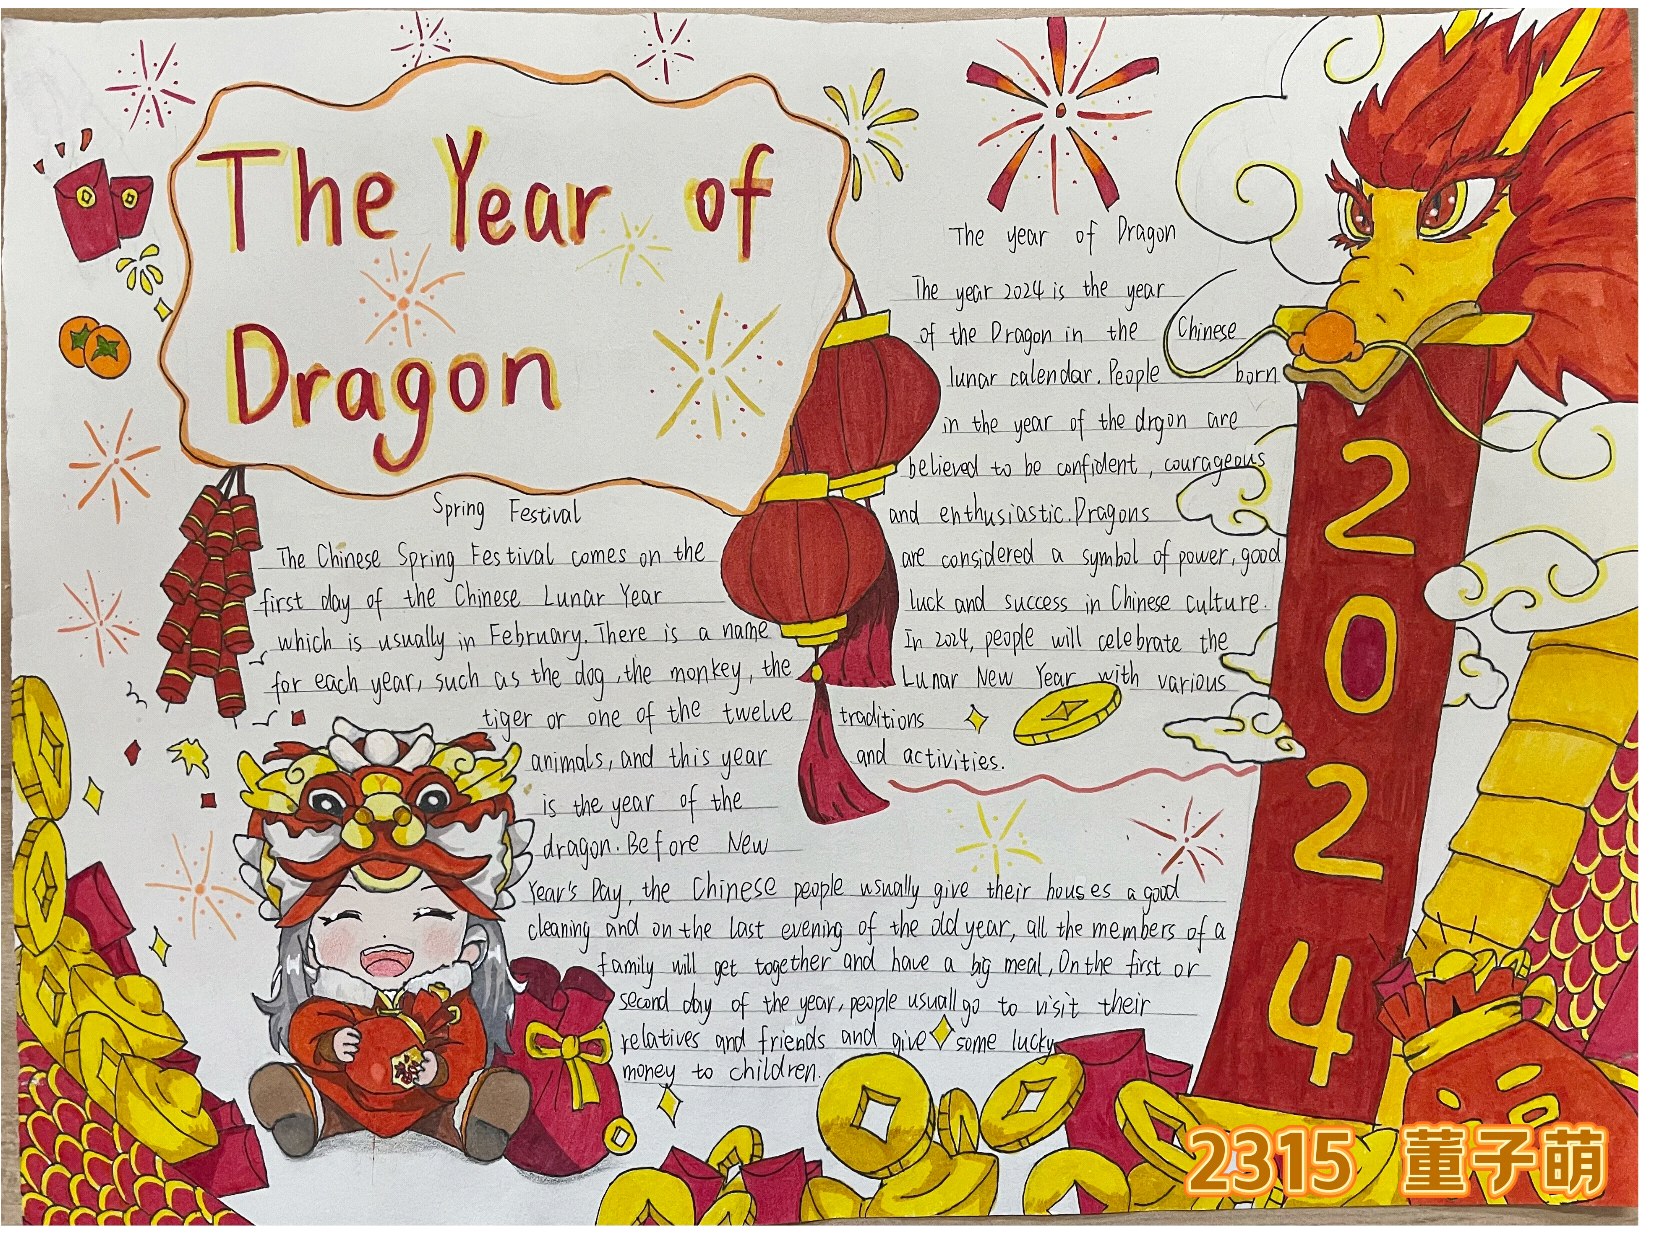 The Year of
Dragon
Spring Festival
The Chinese Spring Festival comes on the
first day of the Chinese Lunar Year
which is usually in February. There is a name
for each year, such as the dog, the monkey, the
tiger or one of the twelve
animals, and this year
is the year of the
dragon. Before New
Year's Day, the Chinese people usually give their houses a good
cleaning and on the last evening of the old year, all the members of a
family will get together and have a big meal, On the first or
second day of the year, people usuall go to visit their
relatives and friends and give some lucky
money to children.
The year of Dragon
The year 2024 is the year
of the Dragon in the Chinese
lunar calendar. People born
in the year of the drgon are
believed to be confident, courageous
and enthusiastic. Dragons
are considered a symbol of power, good
luck and success in Chinese culture.
In 2024, people will celebrate the
Lunar New Year with various
traditions
and activities.
2
0
2
4
2315 董子萌